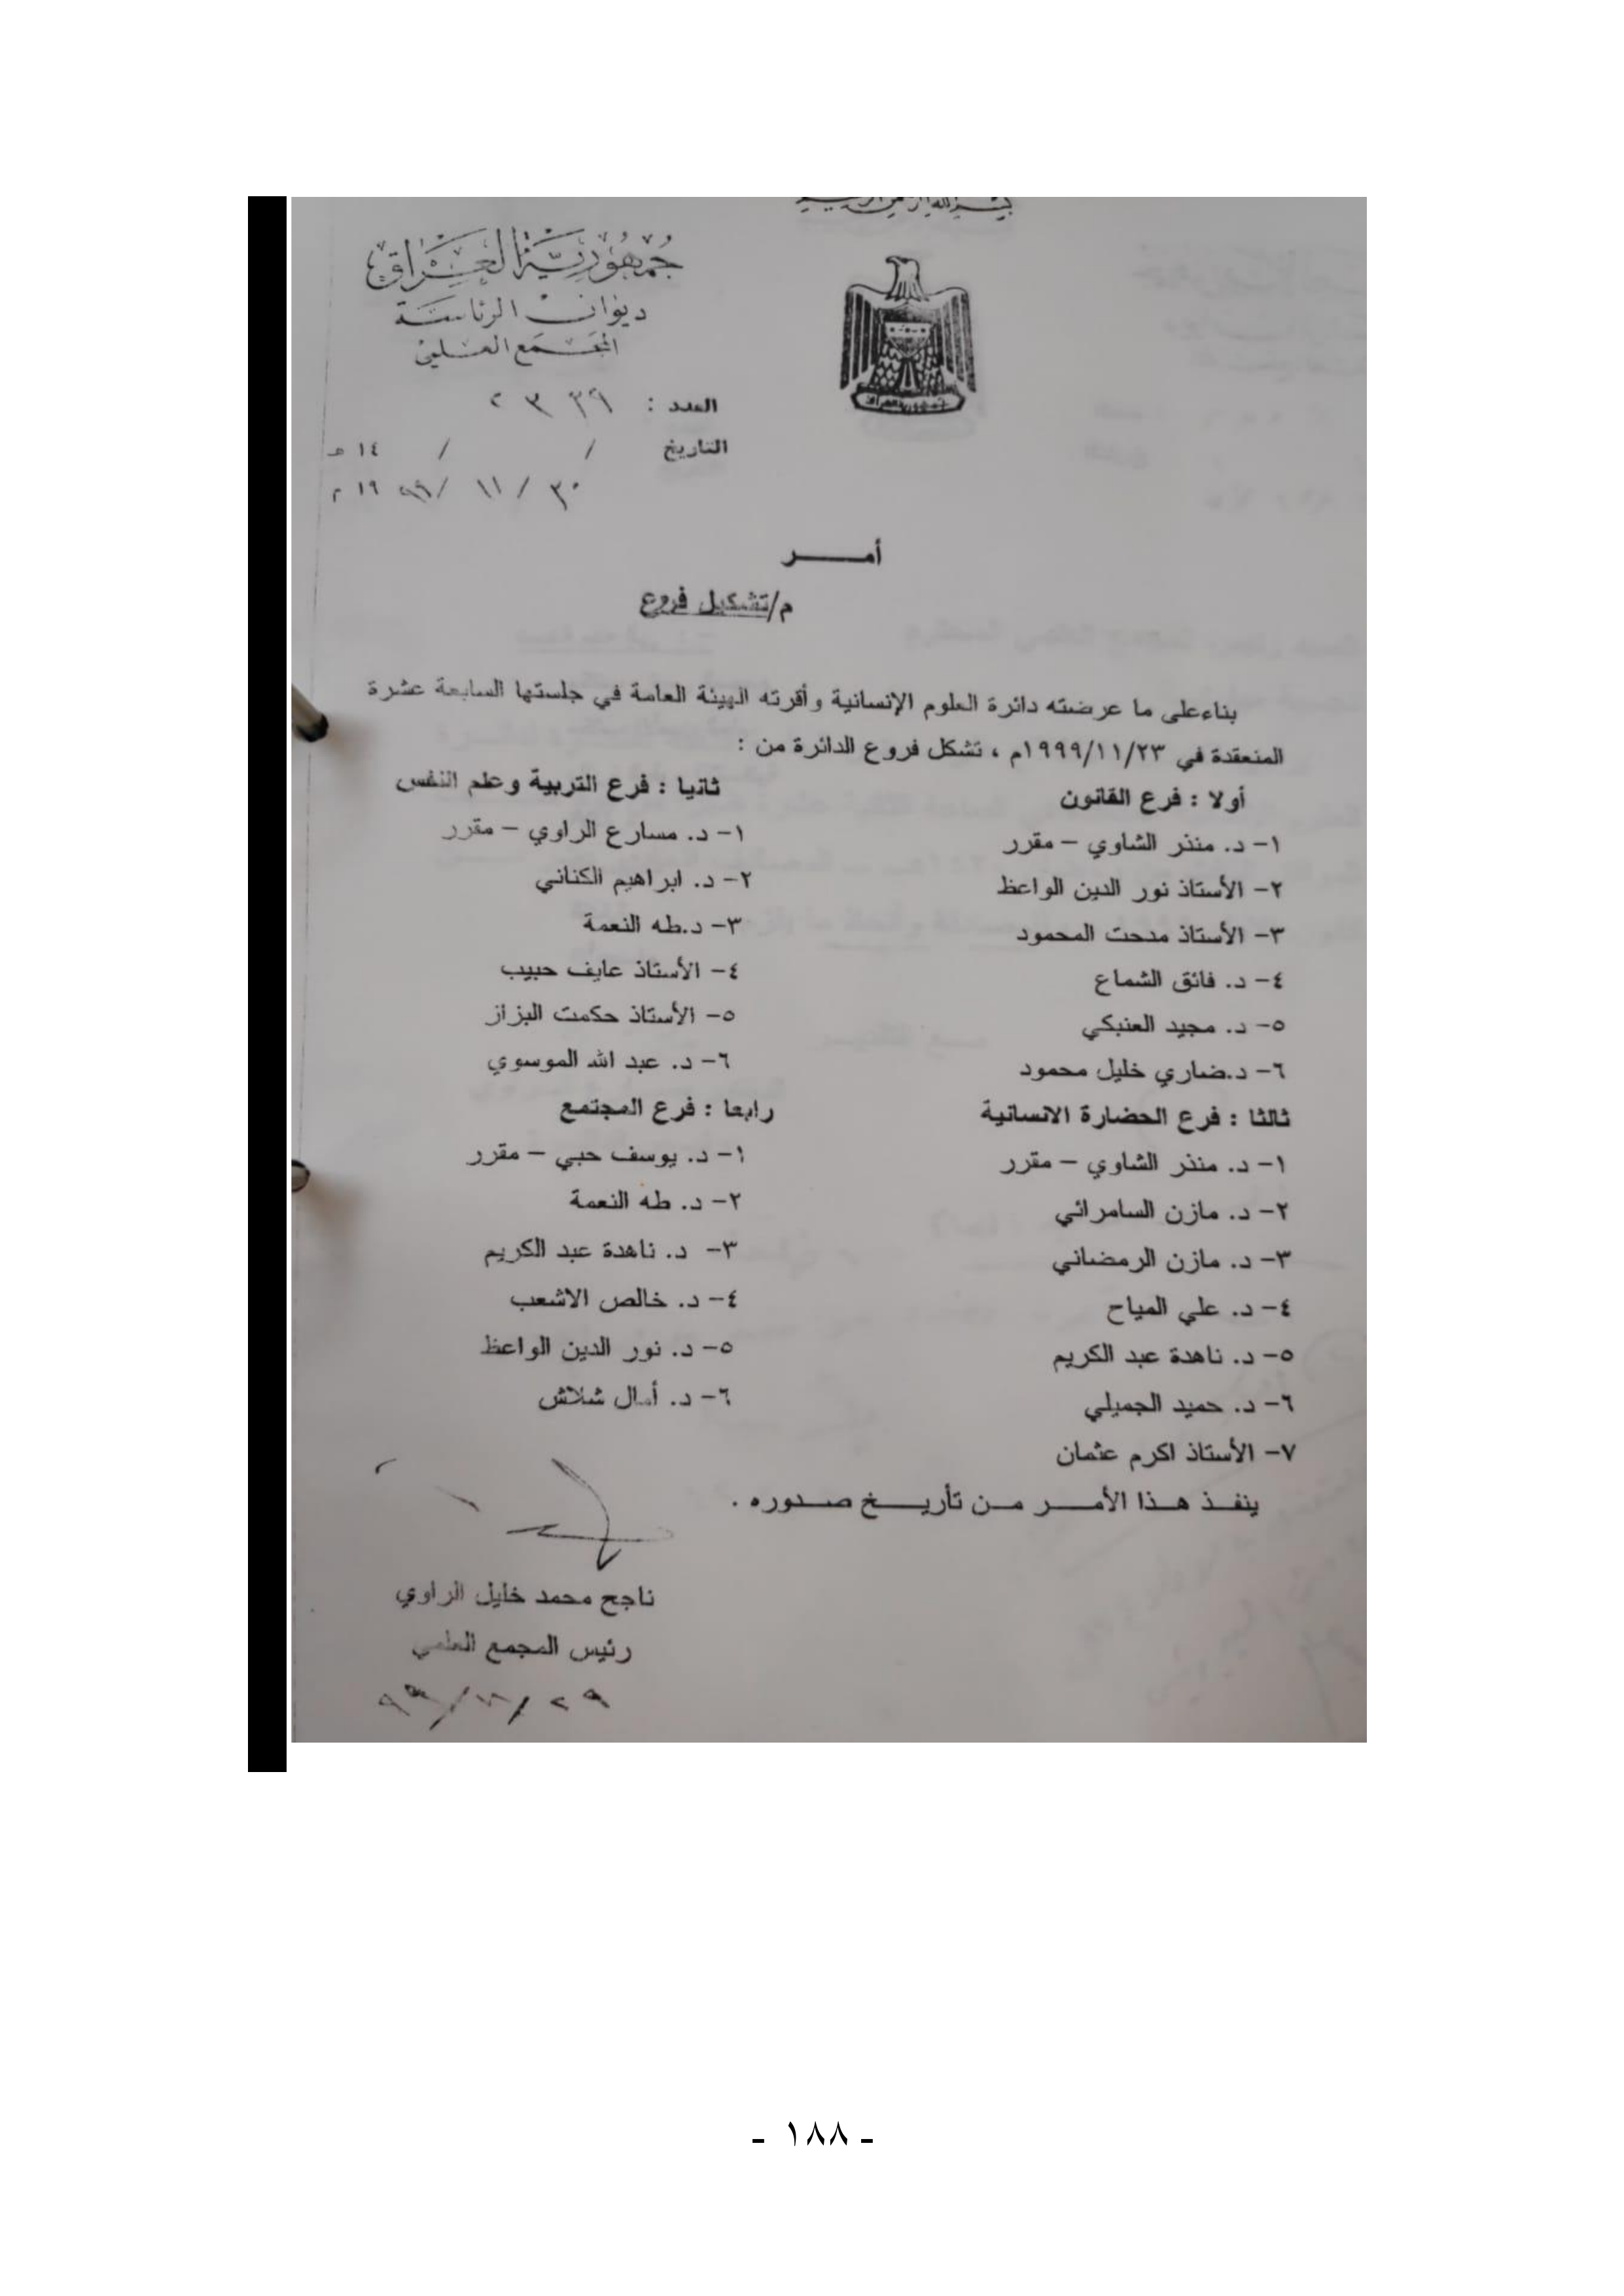 بسم الله الرحمن الرحيم
جمهورية العراق
ديوان الرئاسة
المجمع العلمي
العدد :
التاريخ / / ١٤ هـ
٣٠ / ١١ / ١٩٩٩ م
أمـــــر
م/تشكيل فروع
بناءعلى ما عرضته دائرة العلوم الإنسانية وأقرته الهيئة العامة في جلستها السابعة عشرة
المنعقدة في ١٩٩٩/١١/٢٣م ، تشكل فروع الدائرة من :
أولا : فرع القانون
١- د. منذر الشاوي – مقرر
٢- الأستاذ نور الدين الواعظ
٣- الأستاذ مدحت المحمود
٤- د. فائق الشماع
٥- د. مجيد العنبكي
٦- د.ضاري خليل محمود
ثانيا : فرع التربية وعلم النفس
١- د. مسارع الراوي – مقرر
٢- د. ابراهيم الكناني
٣- د.طه النعمة
٤- الأستاذ عايف حبيب
٥- الأستاذ حكمت البزاز
٦- د. عبد الله الموسوي
ثالثا : فرع الحضارة الانسانية
١- د. منذر الشاوي – مقرر
٢- د. مازن السامرائي
٣- د. مازن الرمضاني
٤- د. علي المياح
٥- د. ناهدة عبد الكريم
٦- د. حميد الجميلي
٧- الأستاذ اكرم عثمان
رابعا : فرع المجتمع
١- د. يوسف حبي – مقرر
٢- د. طه النعمة
٣- د. ناهدة عبد الكريم
٤- د. خالص الاشعب
٥- د. نور الدين الواعظ
٦- د. أمال شلاش
ينفــذ هــذا الأمــــر مــن تأريــــخ صــدوره .
ناجح محمد خليل الراوي
رئيس المجمع العلمي
٢٩ / ١١ / ٩٩
- ١٨٨ -